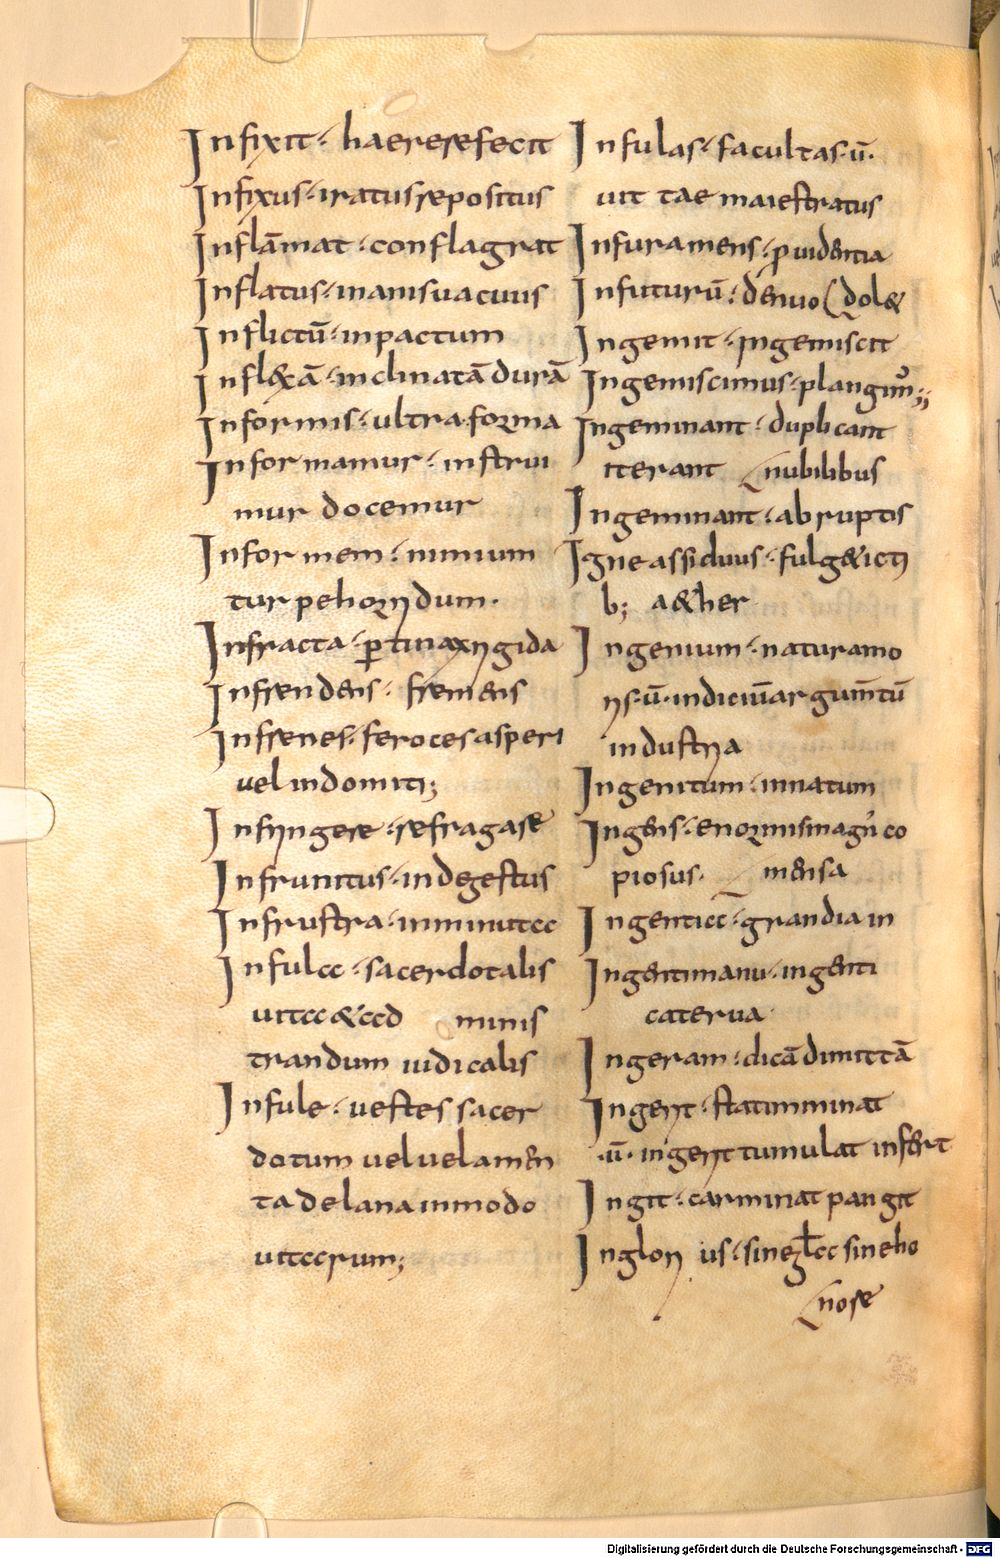 Infixit · haerere fecit
Infixus · iratus repositus
Inflāmat · conflagrat
Inflatus · inanis vacuus
Inflictū · inpactum
Infl&xā · inclinatā durā
Informis · ultra forma
Informamur · instrui
mur docemur
Informem · nimium
turpe horridum ·
Infracta · ꝑtinax rigida
Infrendens · fremens
Infrenes · feroces asperi
vel indomiti;
Infringere · refragare
Infrunitus · indegestus
Infrustra · inminuta
Infula · sacerdotalis
uitta & ad minis
trandum iudicalis
Infule · uestes sacer
dotum uel uelamen
ta de lana inmodo
uittarum;
Infulas · facultas ·ū·
uittae maiestratus
Infuramens · ꝓuidentia
Infuturū · denuo
dol&
Ingemit · ingemiscit
Ingemiscimus · plangim᷒;
Ingeminant · duplicant
iterant
nubilibus
Ingeminant · abruptis
Igne assiduus · fulg& icti
b; a&her
Ingenium · natura mo
ris ·ū· indiciū argumtū
industria
Ingenitum · innatum
Ingens · enormis magn' co
piosus ·
mensa
Ingentia · grandia in
Ingenti manu · ingenti
caterua
Ingeram · dicā dimittā
Ingerit · statim minat
·ū· ingerit tumulat infert
Ingit · carminat pangit
Inglorius · sine gƚa sine ho
nore
Digitalisierung gefördert durch die Deutsche Forschungsgemeinschaft - DFG